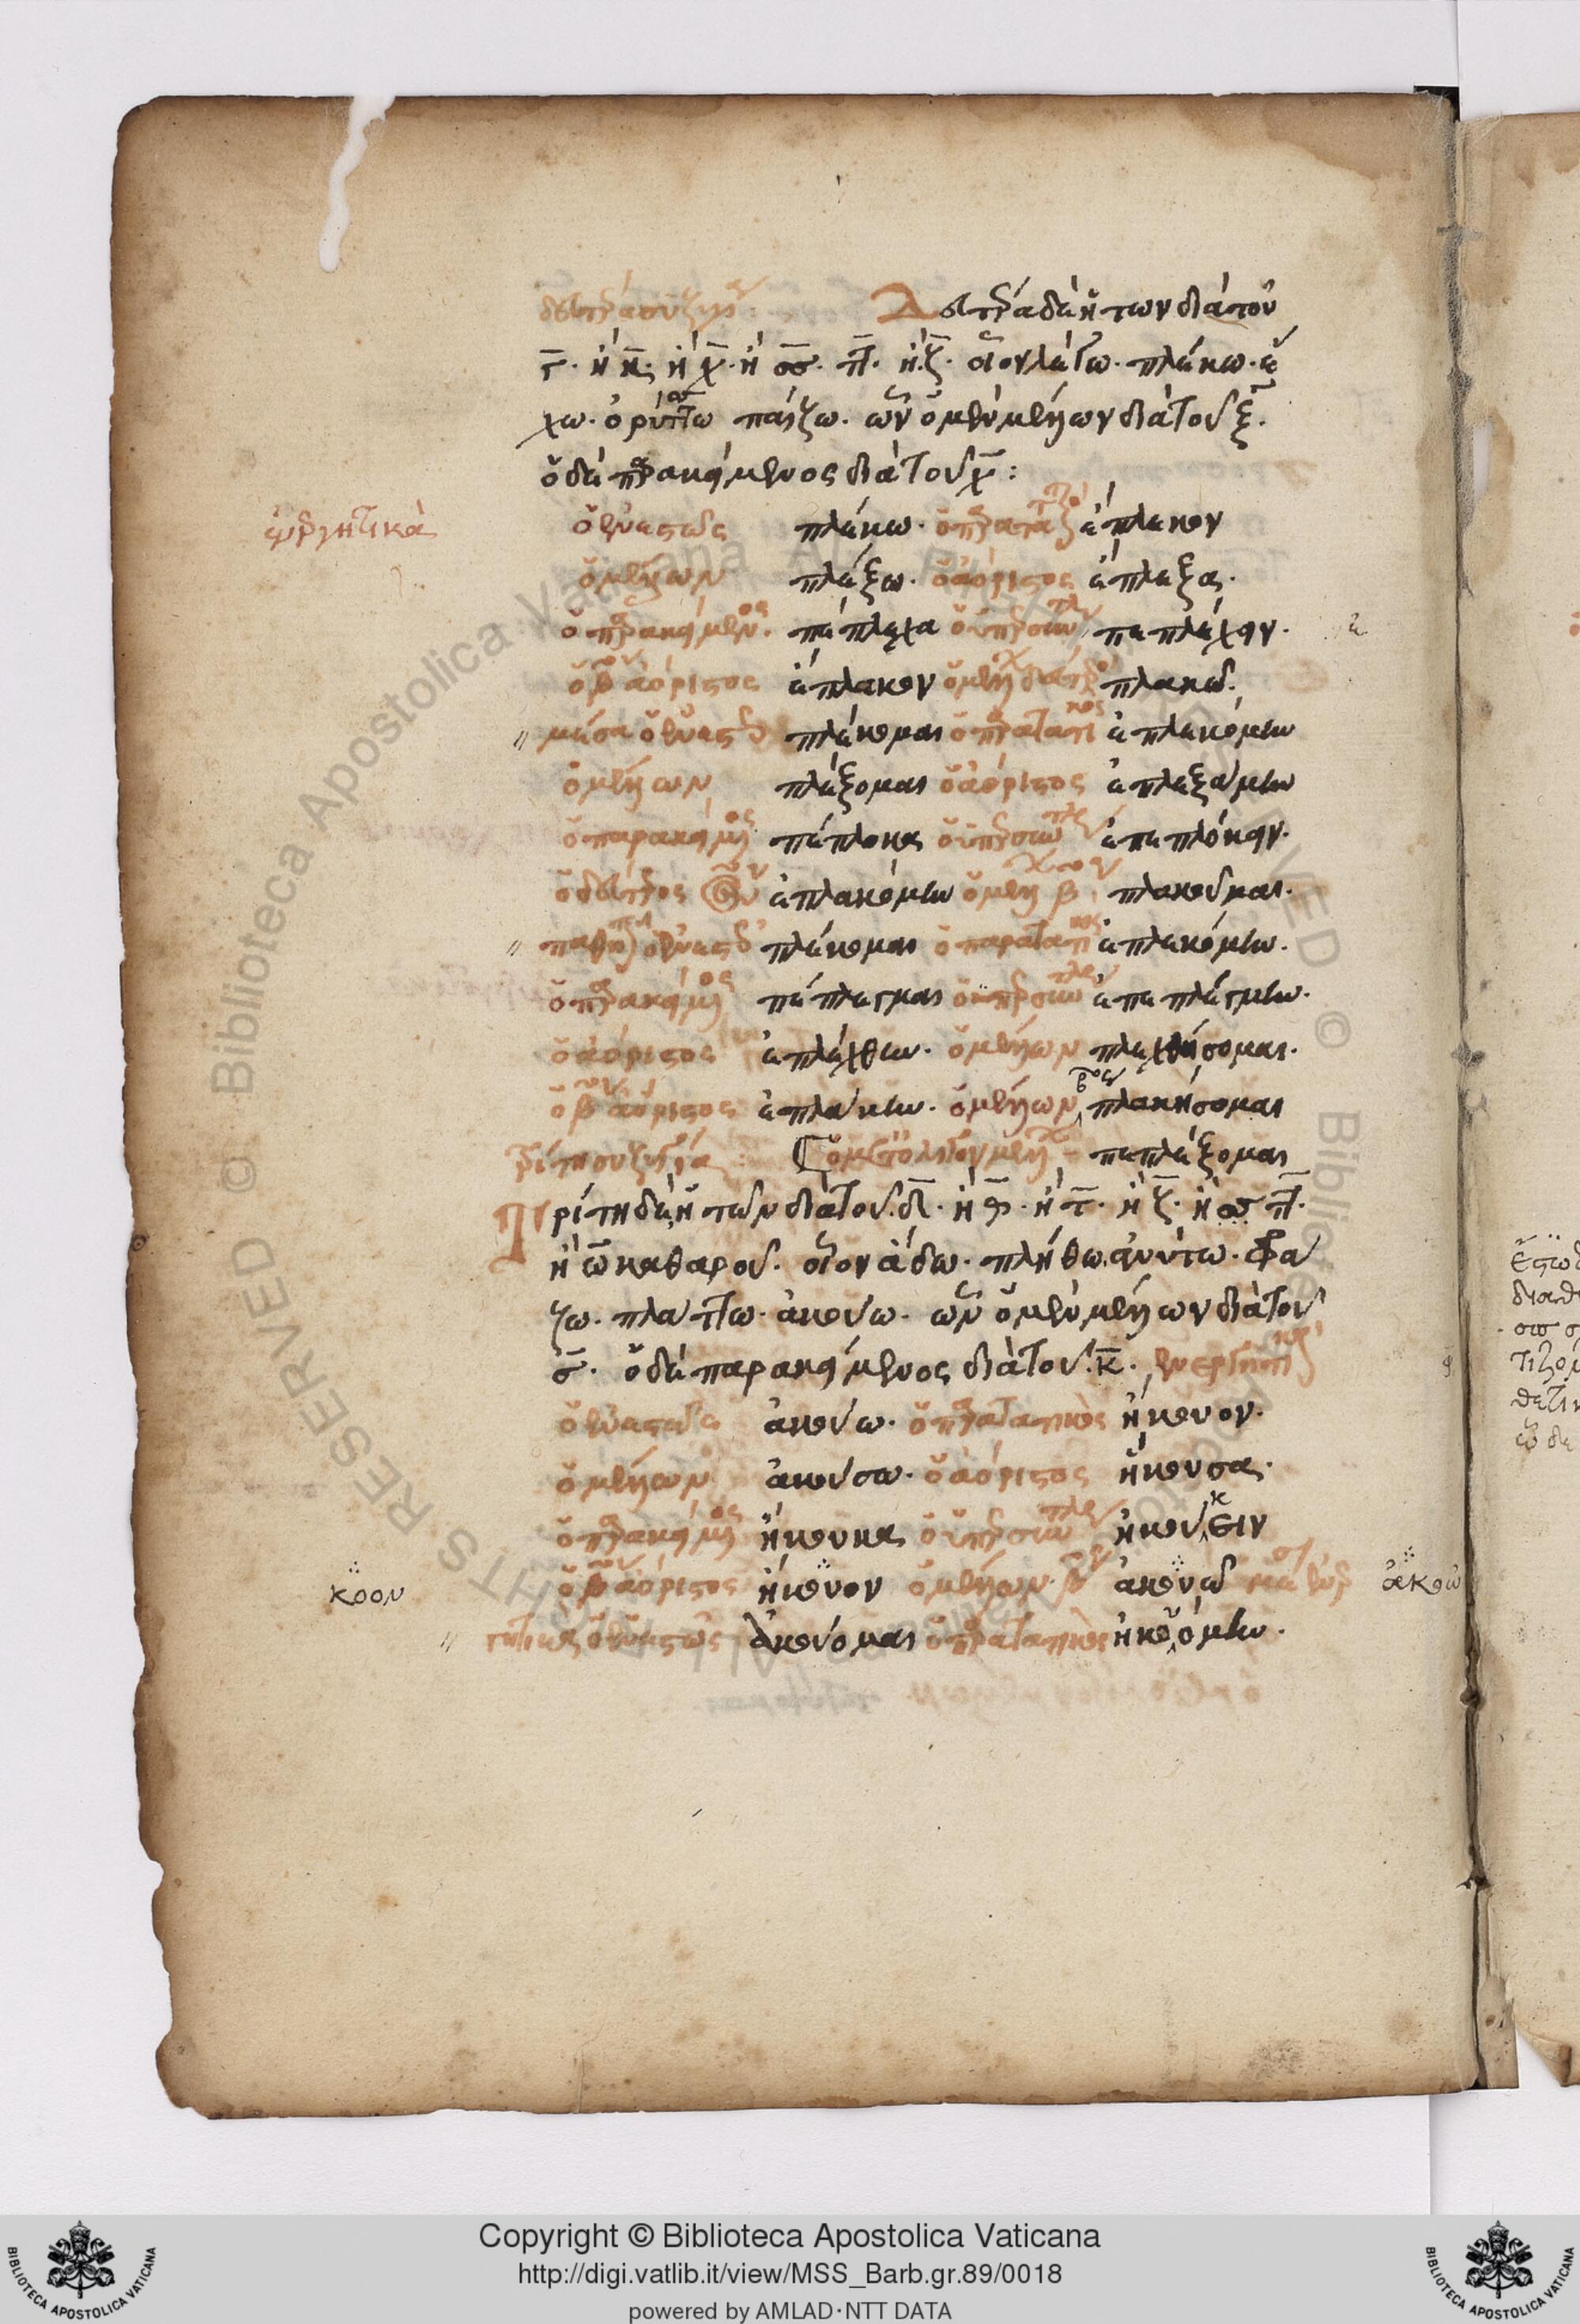 δευτέρα συζυγία: Δευτέρα δὲ ἡ τῶν διὰ τοῦ
γ̅. ἢ κ̅. ἢ χ̅. ἢ σσ̅. π̅. ἢ ζ̅. οἷον λέγω. πλέκω. ἔ
χω. ὀρύττω παίζω. ὧν ὁ μὲν μέλλων διὰ τοῦ ξ̅.
ὁ δὲ παρακείμενος διὰ τοῦ χ̅:
ἐνεργητικὰ
ὁ ἐνεστὼς πλέκω. ὁ παρατατικὸς ἔπλεκον
ὁ μέλλων πλέξω. ὁ ἀόριστος ἔπλεξα.
ὁ παρακείμενος. πέπλεχα ὁ ὑπερσυντέλικος ἐπεπλέχειν.
ὁ β ἀόριστος ἔπλακον ὁ μέλλων δεύτερος πλακῶ.
μέσα ὁ ἐνεστὼς πλέκομαι ὁ παρατατικὸς ἐπλεκόμην
ὁ μέλλων πλέξομαι ὁ ἀόριστος ἐπλεξάμην
ὁ παρακείμενος πέπλοκα ὁ ὑπερσυντέλικος ἐπεπλόκειν.
ὁ δεύτερος ἐπλακόμην ὁ μέλλων β πλακοῦμαι.
ὁ ἐνεστὼς πλέκομαι ὁ παρατατικὸς ἐπλεκόμην.
ὁ παρακείμενος πέπλεγμαι ὁ ὑπερσυντέλικος ἐπεπλέγμην.
ὁ ἀόριστος ἐπλέχθην. ὁ μέλλων πλεχθήσομαι.
ὁ β ἀόριστος ἐπλάκην. ὁ μέλλων πλακήσομαι
τρίτη συζυγία: ὁ μετ' ὀλίγον μέλλων πεπλέξομαι
Τρίτη δὲ ἡ τῶν διὰ τοῦ. δ̅. ἢ θ̅. ἢ τ̅. ἢ ζ̅. ἢ σσ π̅.
ἢ ω̅ καθαροῦ. οἷον ᾄδω. πλήθω. ἀνύτω. φρά
ζω. πλάττω. ἀκούω. ὧν ὁ μὲν μέλλων διὰ τοῦ
σ̅. ὁ δὲ παρακείμενος διὰ τοῦ. κ̅. ἐνεργητικὰ
ὁ ἐνεστὼς ἀκούω. ὁ παρατατικὸς ἤκουον.
ὁ μέλλων ἀκούσω. ὁ ἀόριστος ἤκουσα.
ὁ παρακείμενος ἤκουκα ὁ ὑπερσυντέλικος ἠκούκειν
κοον ὁ β ἀόριστος ἤκουον ὁ μέλλων β ἀκουῶ ἀκοῶ
ὁ ἐνεστὼς ἀκούομαι ὁ παρατατικὸς ἠκουόμην.
Copyright © Biblioteca Apostolica Vaticana
http://digi.vatlib.it/view/MSS_Barb.gr.89/0018
powered by AMLAD·NTT DATA